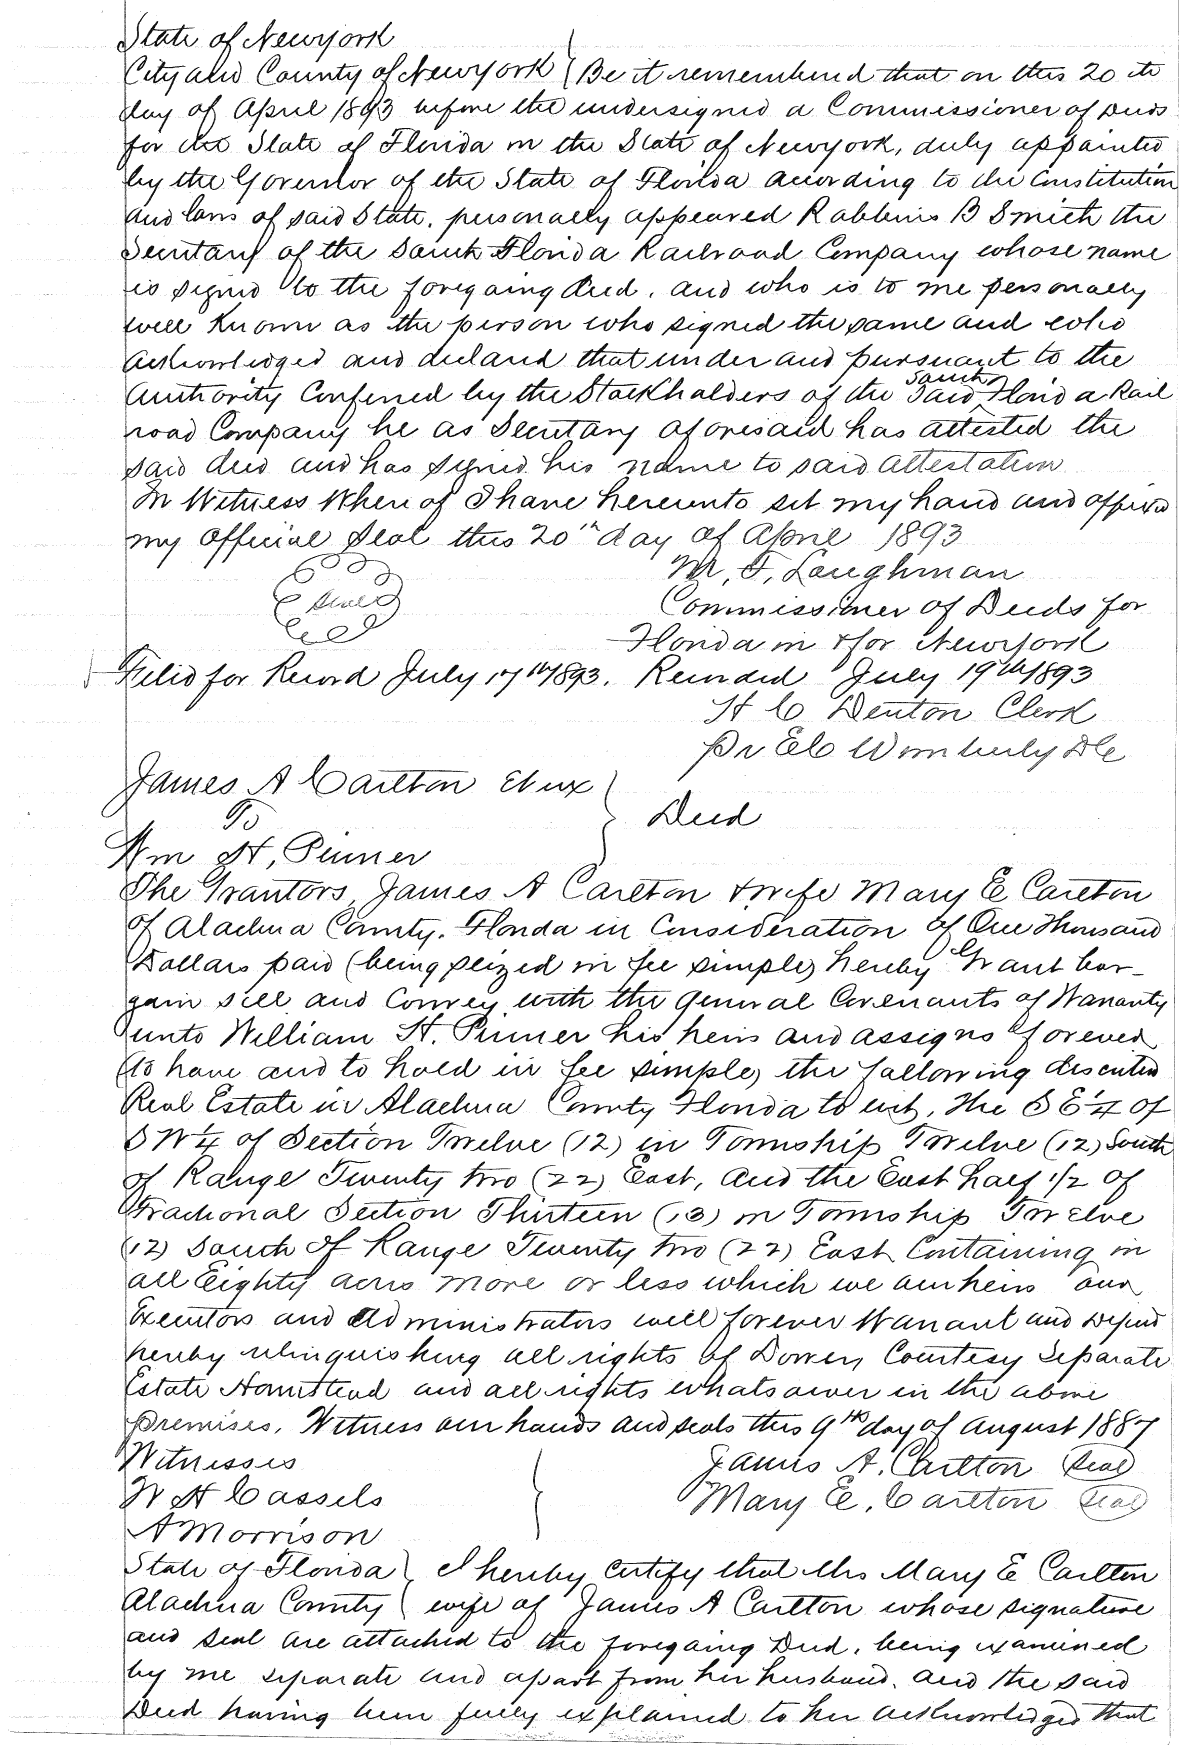 State of Newyork
City and County of Newyork } Be it remembered that on this 20th
day of April 1893 before the undersigned a Commissioner of Deeds
for the State of Florida in the State of Newyork, duly appointed
by the Governor of the State of Florida according to the Constitution
and laws of said State, personally appeared Robbins B Smith the
Secretary of the South Florida Railroad Company whose name
is signed to the foregoing deed, and who is to me personally
well known as the person who signed the same and who
acknowledged and declared that under and pursuant to the
authority Conferred by the Stockholders of the said South Florida Rail
road Company he as Secretary aforesaid has attested the
said deed and has signed his name to said attestation
In Witness Whereof I have hereunto set my hand and affixed
my official seal this 20th day of April 1893
M. F. Loughman
Seal
Commissioner of Deeds for
Florida in & for Newyork
Filed for Record July 17th 1893. Recorded July 19th 1893
H C Denton Clerk
Pr E C Wimberly D C
James A Carlton Et ux
To } Deed
Wm H, Pinner
The Grantors, James A Carlton & wife Mary E Carlton
of Alachua County, Florida in Consideration of One Thousand
Dollars paid (being seized in fee simple) hereby Grant bar-
gain sell and Convey with the general Covenants of Warranty
unto William H. Pinner his heirs and assigns forever
(to have and to hold in fee simple) the following described
Real Estate in Alachua County Florida to wit, The S E 1/4 of
S W 1/4 of Section Twelve (12) in Township Twelve (12) South
of Range Twenty two (22) East, and the East half 1/2 of
Fractional Section Thirteen (13) in Township Twelve
(12) South of Range Twenty two (22) East Containing in
all Eighty acres more or less which we our heirs our
Executors and Administrators will forever Warrant and Defend
hereby relinquishing all rights of Dower, Courtesy Separate
Estate Homestead and all rights whatsoever in the above
premises. Witness our hands and seals this 9th day of August 1887
Witnesses } James A. Carlton Seal
W H Cassels Mary E. Carlton Seal
A Morrison
State of Florida } I hereby Certify that Mrs Mary E Carlton
Alachua County } wife of James A Carlton whose signature
and seal are attached to the foregoing Deed, being examined
by me separate and apart from her husband, and the said
Deed having been fully explained to her acknowledged that